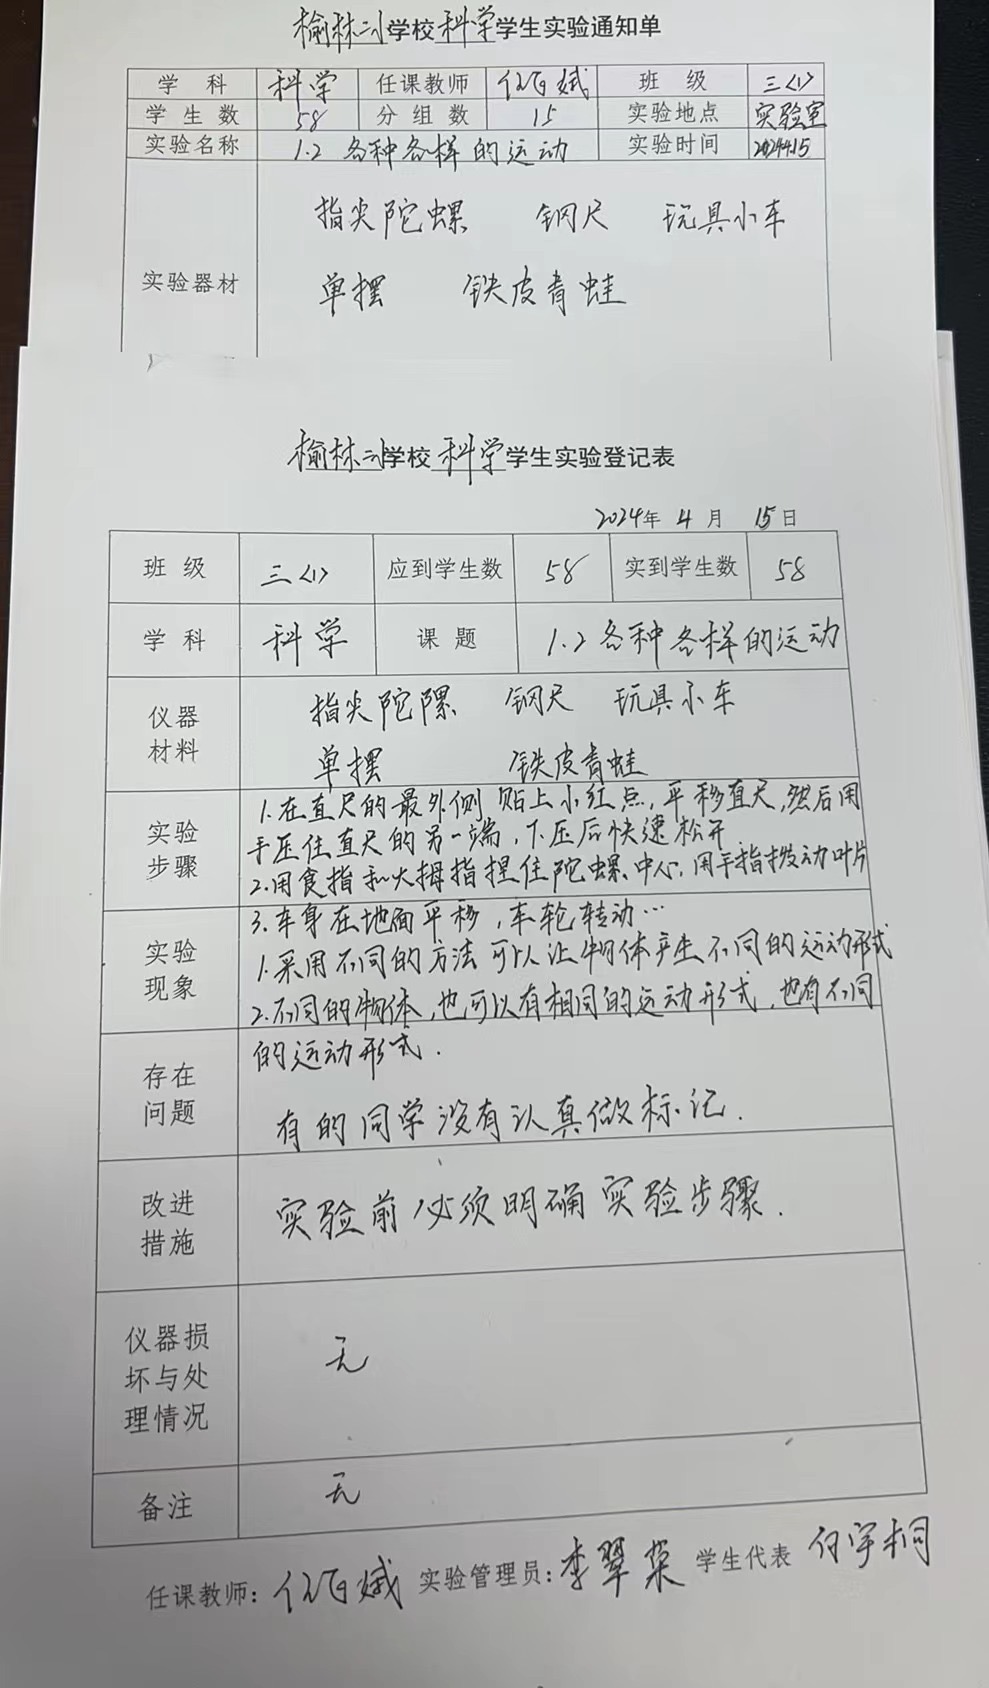 榆林二小学校科学学生实验通知单
学科 科学 任课教师 班级 三<1>
学生数 58 分组数 15 实验地点 实验室
实验名称 1.2 各种各样的运动 实验时间 2024.4.15
指尖陀螺 钢尺 玩具小车
实验器材
单摆 铁皮青蛙
榆林二小学校科学学生实验登记表
2024年4月15日
班级 三<1> 应到学生数 58 实到学生数 58
学科 科学 课题 1.2 各种各样的运动
仪器材料 指尖陀螺 钢尺 玩具小车
单摆 铁皮青蛙
实验步骤 1.在直尺的最外侧贴上小红点,平移直尺,然后用
手压住直尺的另一端,下压后快速松开
2.用食指和大拇指捏住陀螺中心,用手指拨动叶片
3.车身在地面平移,车轮转动…
实验现象 1.采用不同的方法可以让物体产生不同的运动形式
2.不同的物体,也可以有相同的运动形式,也有不同
的运动形式.
存在问题 有的同学没有认真做标记.
改进措施 实验前必须明确实验步骤.
仪器损坏与处理情况 无
备注 无
任课教师: 实验管理员:李翠荣 学生代表 白宇桐